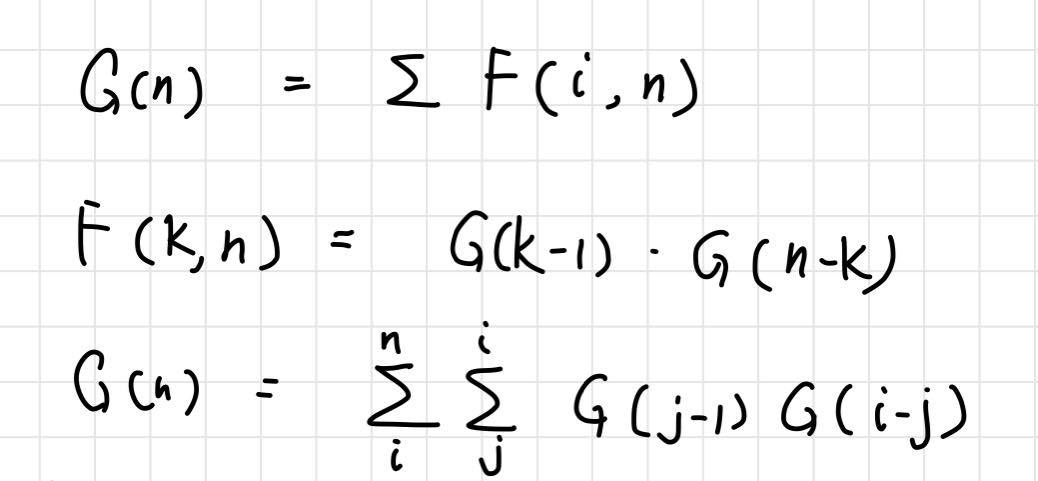 G(n) = Σ F(i, n)
F(k, n) = G(k-1) · G(n-k)
G(n) = \sum_{i}^{n} \sum_{j}^{i} G(j-1) G(i-j)